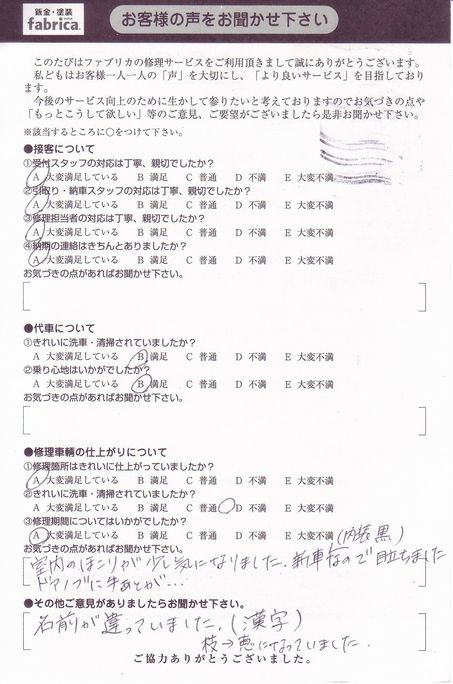 鈑金・塗装
fabrica.
お客様の声をお聞かせ下さい
このたびはファブリカの修理サービスをご利用頂きまして誠にありがとうございます。
私どもはお客様一人一人の「声」を大切にし、「より良いサービス」を目指しており
ます。
今後のサービス向上のために生かして参りたいと考えておりますのでお気づきの点や
「もっとこうして欲しい」等のご意見、ご要望がございましたら是非お聞かせ下さい。
※該当するところに○をつけて下さい。
●接客について
①受付スタッフの対応は丁寧、親切でしたか?
A 大変満足している B 満足 C 普通 D 不満 E 大変不満
②引取り・納車スタッフの対応は丁寧、親切でしたか?
A 大変満足している B 満足 C 普通 D 不満 E 大変不満
③修理担当者の対応は丁寧、親切でしたか?
A 大変満足している B 満足 C 普通 D 不満 E 大変不満
④納期の連絡はきちんとありましたか?
A 大変満足している B 満足 C 普通 D 不満 E 大変不満
お気づきの点があればお聞かせ下さい。
●代車について
①きれいに洗車・清掃されていましたか?
A 大変満足している B 満足 C 普通 D 不満 E 大変不満
②乗り心地はいかがでしたか?
A 大変満足している B 満足 C 普通 D 不満 E 大変不満
お気づきの点があればお聞かせ下さい。
●修理車輌の仕上がりについて
①修理箇所はきれいに仕上がっていましたか?
A 大変満足している B 満足 C 普通 D 不満 E 大変不満
②きれいに洗車・清掃されていましたか?
A 大変満足している B 満足 C 普通 D 不満 E 大変不満
③修理期間についてはいかがでしたか?
A 大変満足している B 満足 C 普通 D 不満 E 大変不満
お気づきの点があればお聞かせ下さい。
(内装黒)
室内のほこりが少し気になりました。新車なので目立ちました
ドアノブに あとが…
●その他ご意見がありましたらお聞かせ下さい。
名前が違っていました。(漢字)
枝→恵になっていました。
ご協力ありがとうございました。